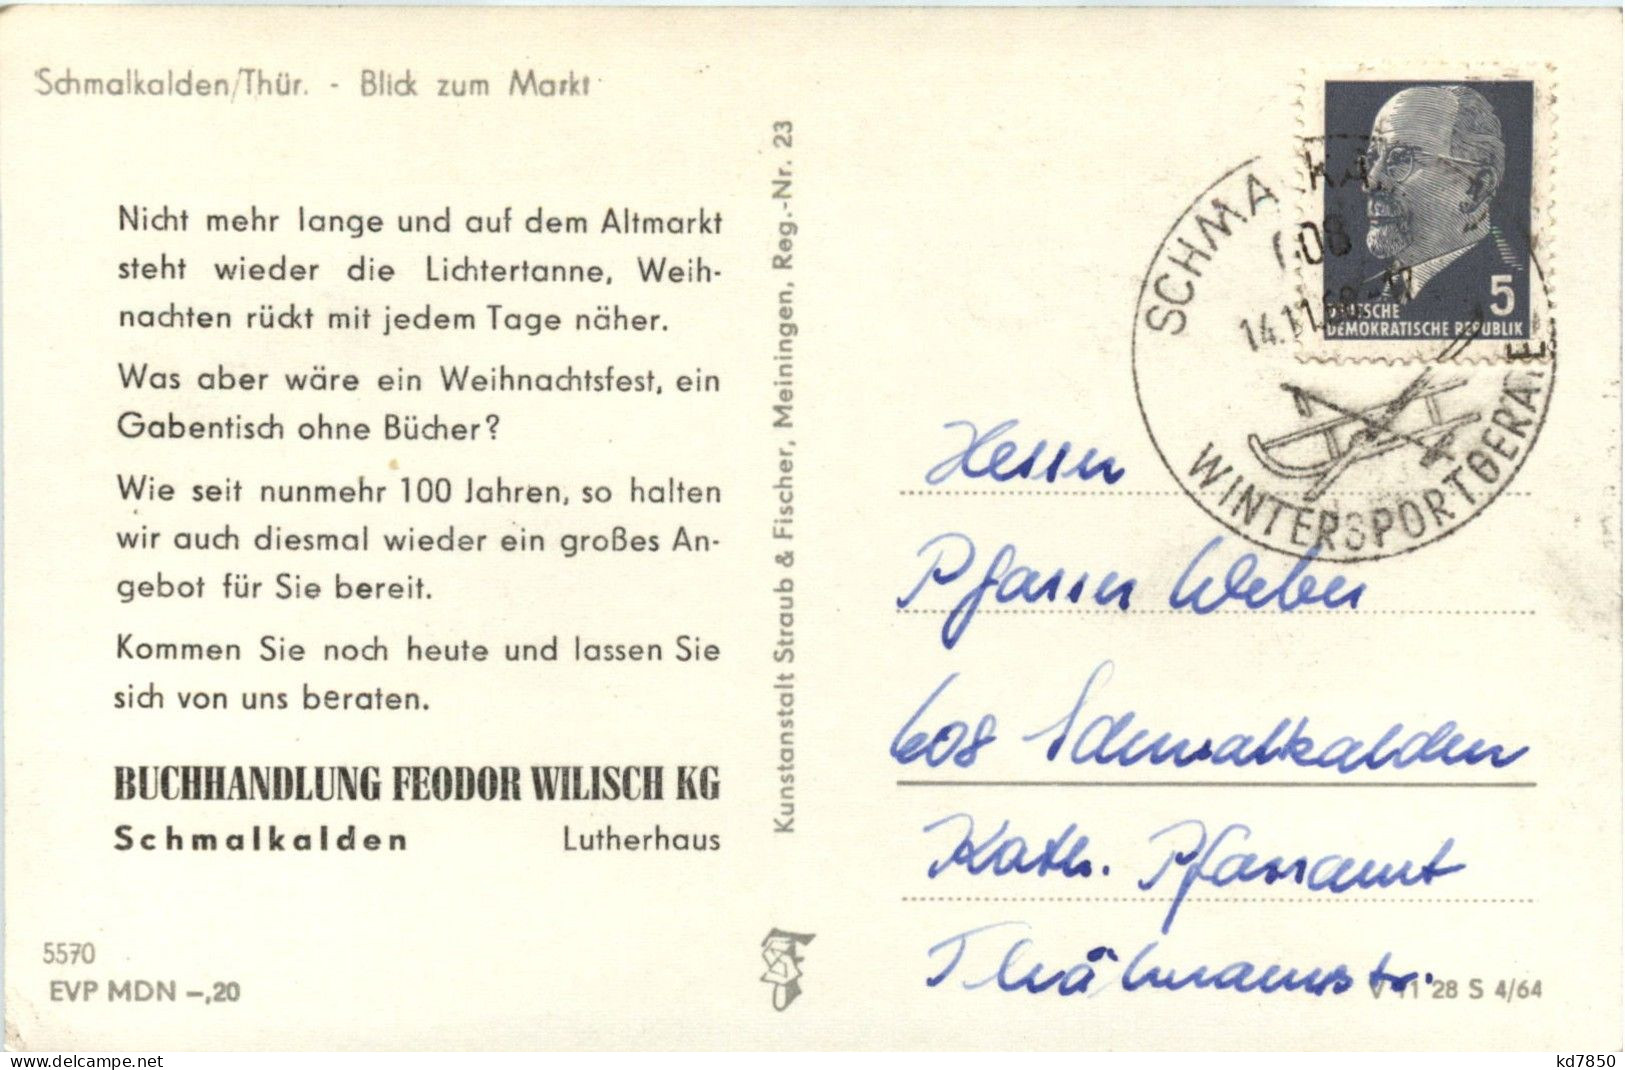 Schmalkalden/Thür. - Blick zum Markt
Nicht mehr lange und auf dem Altmarkt
steht wieder die Lichtertanne, Weih-
nachten rückt mit jedem Tage näher.
Was aber wäre ein Weihnachtsfest, ein
Gabentisch ohne Bücher?
Wie seit nunmehr 100 Jahren, so halten
wir auch diesmal wieder ein großes An-
gebot für Sie bereit.
Kommen Sie noch heute und lassen Sie
sich von uns beraten.
BUCHHANDLUNG FEODOR WILISCH KG
Schmalkalden Lutherhaus
5570
EVP MDN –,20
Kunstanstalt Straub & Fischer, Meiningen, Reg.-Nr. 23
5
DEUTSCHE
DEMOKRATISCHE REPUBLIK
608
WINTERSPORTGERÄTE
Herrn
Pfarrer Weber
608 Schmalkalden
Kath. Pfarramt
Thälmannstr.
V 11 28 S 4/64
https://www.delcampe.net
kd7850